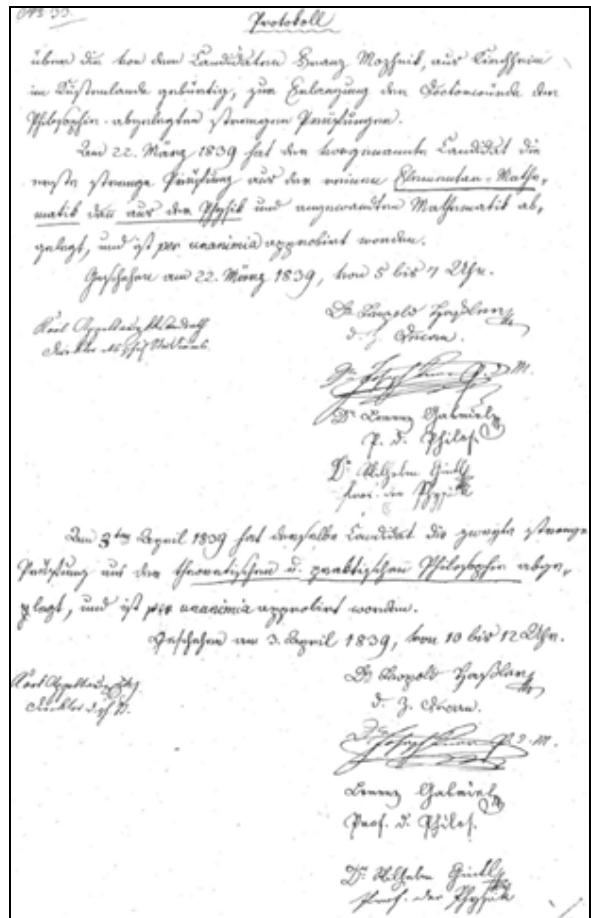 Protokoll
über die von dem Candidaten Franz Mozhnik, aus Kirchheim
im Küstenlande gebürtig, zur Erlangung der Doctorwürde der
Philosophie abgelegten strengen Prüfungen.
Am 22. März 1839 hat der vorgenannte Candidat die
erste strenge Prüfung aus der reinen Elementar-Mathe-
matik dann aus der Physik und angewandten Mathematik ab-
gelegt, und ist per unanimia approbirt worden.
Geschehen am 22. März 1839, von 5 bis 7 Uhr.
Karl Appeltauer
Direktor
Dr Leopold Haßler
d. z. Decan.
Dr Joseph P. d. M.
Dr Lorenz Gabriel
P. d. Philos.
Dr Wilhelm Gintl
Prof. der Physik
Am 3ten April 1839 hat derselbe Candidat die zweyte strenge
Prüfung aus der theoretischen u. praktischen Philosophie abge-
legt, und ist per unanimia approbirt worden.
Geschehen am 3. April 1839, von 10 bis 12 Uhr.
Karl Appeltauer
Direktor
Dr Leopold Haßler
d. z. Decan.
Dr Joseph P. d. M.
Lorenz Gabriel
Prof. d. Philos.
Dr Wilhelm Gintl
Prof. der Physik